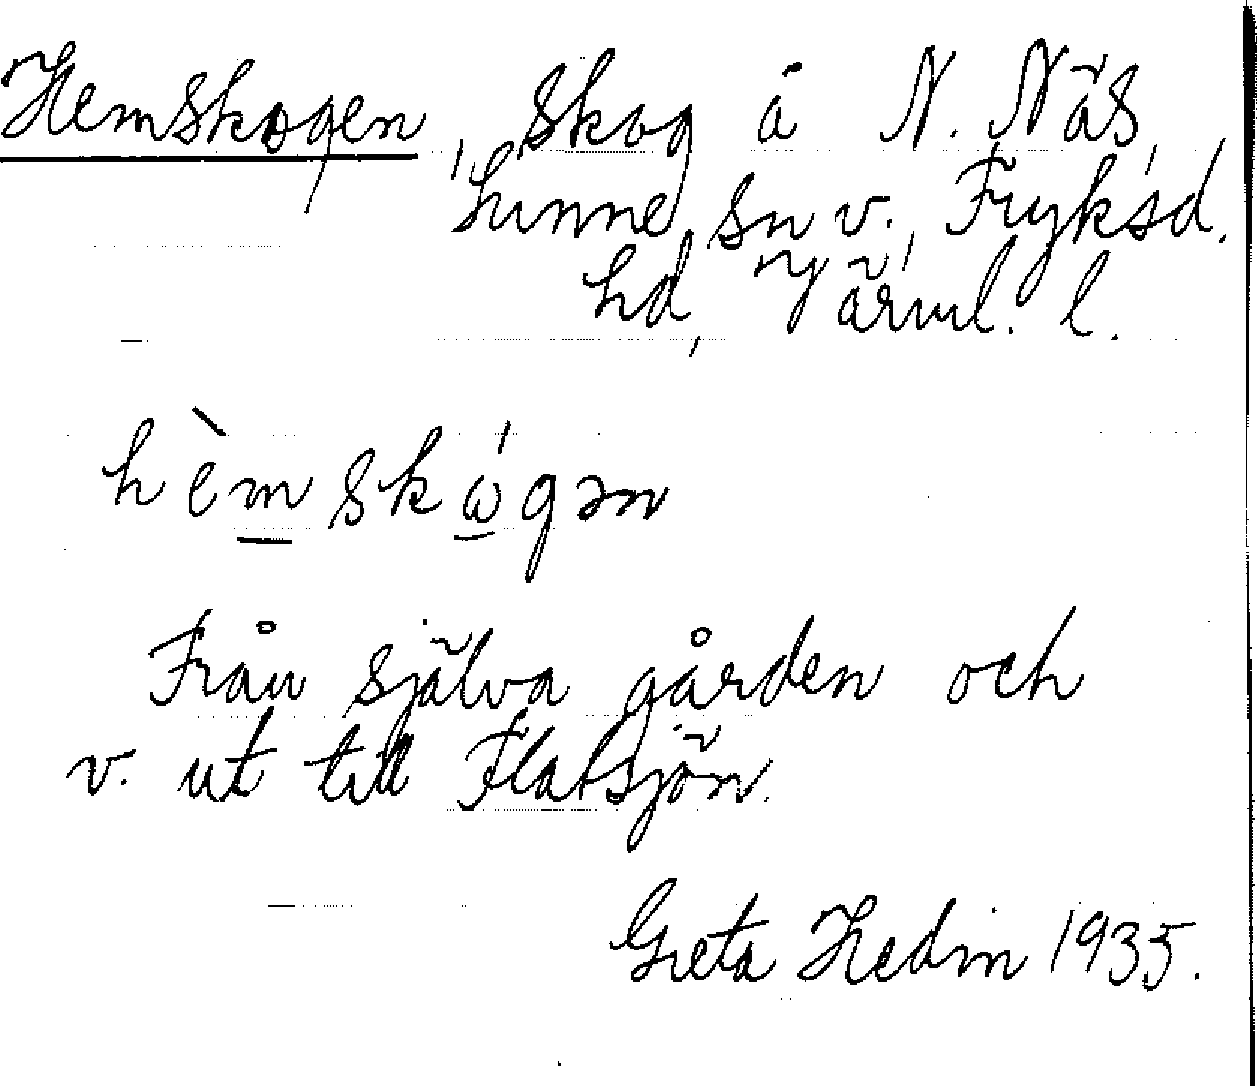 Hemskogen, skog å N. Näs,
Sunne sn v., Fryksd.
hd, Värml. l.
hèmskógən
Från själva gården och
v. ut till Flatsjön.
Greta Hedin 1935.